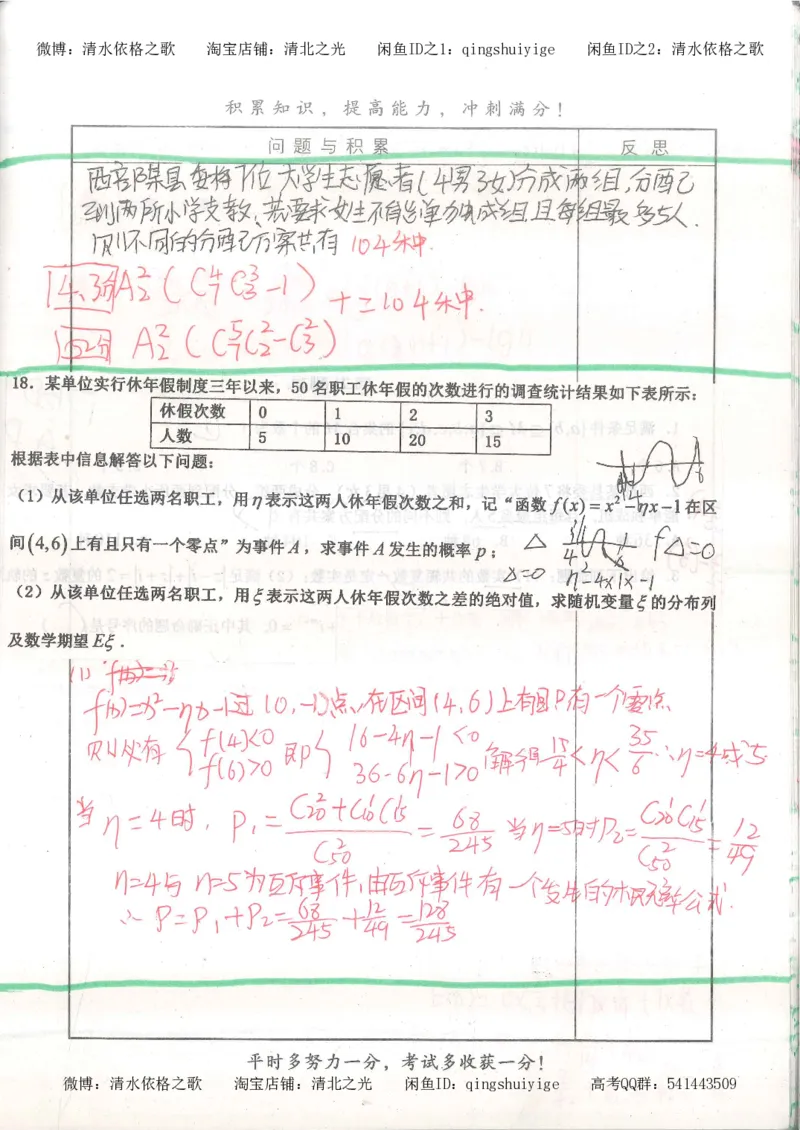 微博：清水依格之歌 淘宝店铺：清北之光 闲鱼ID之1：qingshuiyige 闲鱼ID之2：清水依格之歌
积累知识，提高能力，冲刺满分！
问题与积累 反思
西部某县委将7位大学生志愿者(4男3女)分成两组,分配
到两所小学支教,若要求女生不能单独成组,且每组最多5人.
则不同的分配方案共有 104种.
4.3分 A₂² ( C₇⁴ C₃³ -1 )
+ = 104种.
5.2分 A₂² ( C₇⁵ C₂² - C₃² )
18．某单位实行休年假制度三年以来，50名职工休年假的次数进行的调查统计结果如下表所示：
休假次数 0 1 2 3
人数 5 10 20 15
根据表中信息解答以下问题：
（1）从该单位任选两名职工，用η表示这两人休年假次数之和，记“函数 f(x)=x²-ηx-1在区
间(4,6)上有且只有一个零点”为事件A，求事件A发生的概率p；
△ f△=0
△=0 η²-4×1×-1
（2）从该单位任选两名职工，用ξ表示这两人休年假次数之差的绝对值，求随机变量ξ的分布列
及数学期望Eξ．
(1)
f(x)=x²-ηx-1过(0,-1)点,在区间(4,6)上有且只有一个零点
则必有 { f(4)<0 f(6)>0 即 { 16-4η-1<0 36-6η-1>0 解得 15/4<η<35/6 ∴η=4或5
当η=4时, P₁= (C₂₀²+C₁₀¹C₁₅¹)/C₅₀² = 68/245 当η=5时P₂= C₂₀¹C₁₅¹/C₅₀² = 12/49
η=4与η=5为互斥事件,由互斥事件有一个发生的概率公式.
∴ P=P₁+P₂= 68/245 + 12/49 = 128/245
平时多努力一分，考试多收获一分！
微博：清水依格之歌 淘宝店铺：清北之光 闲鱼ID：qingshuiyige 高考QQ群：541443509